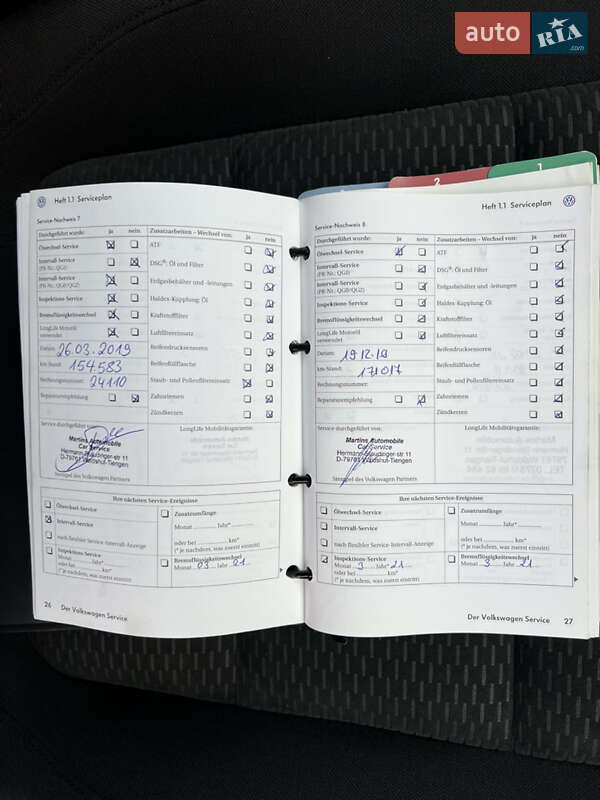 auto RIA .com
2
1
Heft 1.1 Serviceplan
Service-Nachweis 7
Durchgeführt wurde: ja nein Zusatzarbeiten – Wechsel von: ja nein
Ölwechsel-Service ATF
Intervall-Service DSG®: Öl und Filter
(PR-Nr. QG1)
Intervall-Service Erdgasbehälter und -leitungen
(PR-Nr. QG0/QG2)
Inspektions-Service Haldex-Kupplung: Öl
Bremsflüssigkeitswechsel Kraftstofffilter
LongLife Motoröl Luftfiltereinsatz
verwendet
Datum: 26.03.2019 Reifendrucksensoren
km-Stand: 154.583 Reifenfüllflasche
Rechnungsnummer: 24110 Staub- und Pollenfiltereinsatz
Reparaturempfehlung Zahnriemen
Zündkerzen
Service durchgeführt von: LongLife Mobilitätsgarantie:
Martins Automobile
Car Service
Hermann-Blaudinger-str 11
D-79761 Waldshut-Tiengen
Stempel des Volkswagen Partners
Ihre nächsten Service-Ereignisse
Ölwechsel-Service Zusatzumfänge:
Intervall-Service Monat Jahr*
oder bei km*
nach flexibler Service-Intervall-Anzeige (* je nachdem, was zuerst eintritt)
Inspektions-Service Bremsflüssigkeitswechsel
Monat Jahr* Monat 03 Jahr 21
oder bei km*
(* je nachdem, was zuerst eintritt)
26 Der Volkswagen Service
Heft 1.1 Serviceplan
Service-Nachweis 8
Durchgeführt wurde: ja nein Zusatzarbeiten – Wechsel von: ja nein
Ölwechsel-Service ATF
Intervall-Service DSG®: Öl und Filter
(PR-Nr. QG1)
Intervall-Service Erdgasbehälter und -leitungen
(PR-Nr. QG0/QG2)
Inspektions-Service Haldex-Kupplung: Öl
Bremsflüssigkeitswechsel Kraftstofffilter
LongLife Motoröl Luftfiltereinsatz
verwendet
Datum: 19.12.19 Reifendrucksensoren
km-Stand: 171017 Reifenfüllflasche
Rechnungsnummer: Staub- und Pollenfiltereinsatz
Reparaturempfehlung Zahnriemen
Zündkerzen
Service durchgeführt von: LongLife Mobilitätsgarantie:
Martins Automobile
Car Service
Hermann-Blaudinger-str 11
D-79761 Waldshut-Tiengen
Stempel des Volkswagen Partners
Ihre nächsten Service-Ereignisse
Ölwechsel-Service Zusatzumfänge:
Intervall-Service Monat Jahr*
oder bei km*
nach flexibler Service-Intervall-Anzeige (* je nachdem, was zuerst eintritt)
Inspektions-Service Bremsflüssigkeitswechsel
Monat 3 Jahr 21 Monat 3 Jahr 21
oder bei km*
(* je nachdem, was zuerst eintritt)
Der Volkswagen Service 27